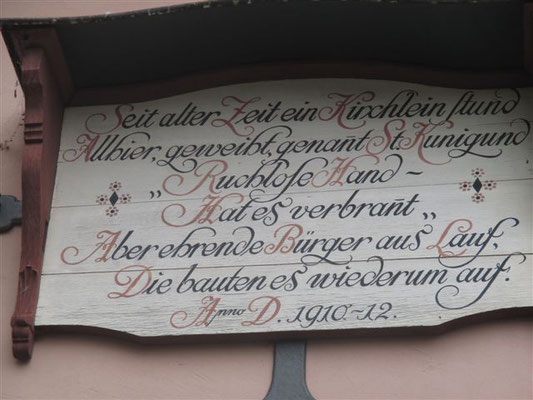 Seit alter Zeit ein Kirchlein stund
Allhier, geweiht, genant St. Kunigund
„Ruchlose Hand –
Hat es verbrañt„
Aber ehrende Bürger aus Lauf,
Die bauten es wiederum auf.
Anno D. 1910.-12.